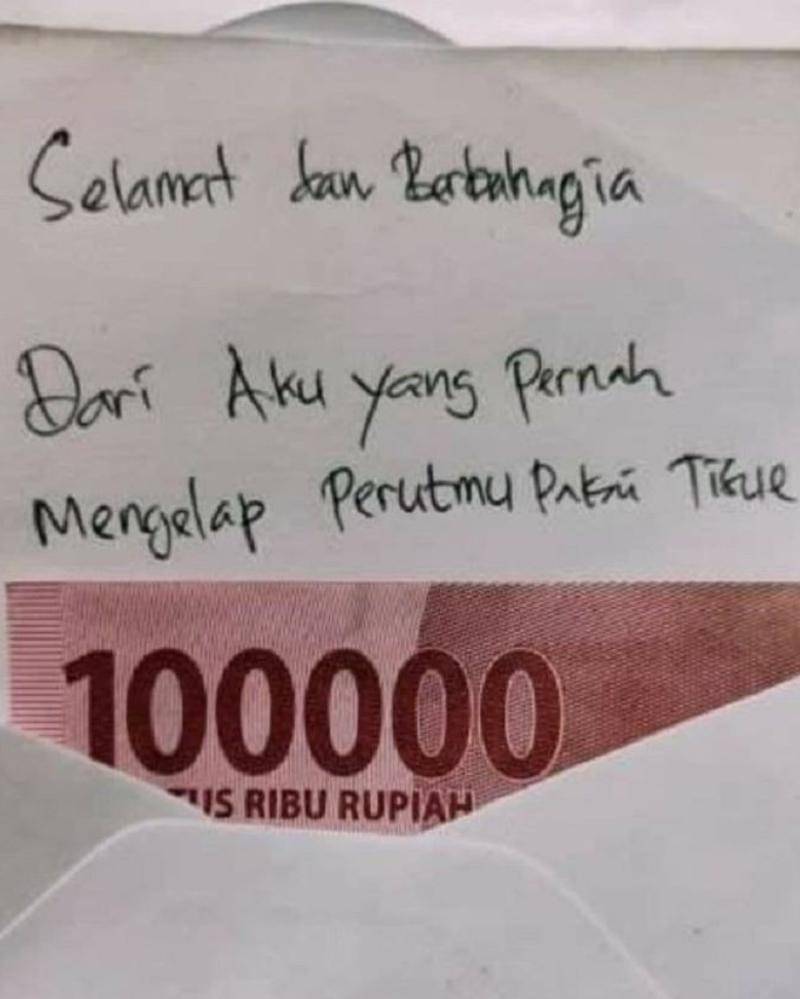 Selamat dan Berbahagia
Dari Aku yang Pernah
Mengelap Perutmu Pakai Tisue
100000
TUS RIBU RUPIAH